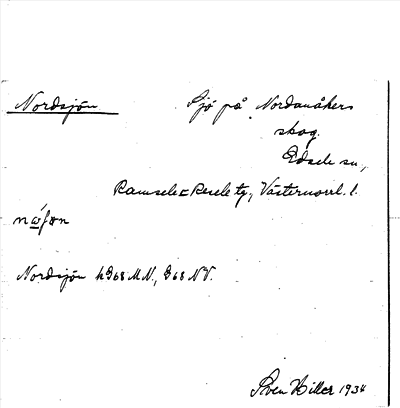 Nordsjön
Sjö på Nordanåkers
skog.
Edsele sn,
Ramsele=Resele tg, Västernorrl. l.
Nordsjön h 968 M.N., 968 NV.
Sven Hiller 1934